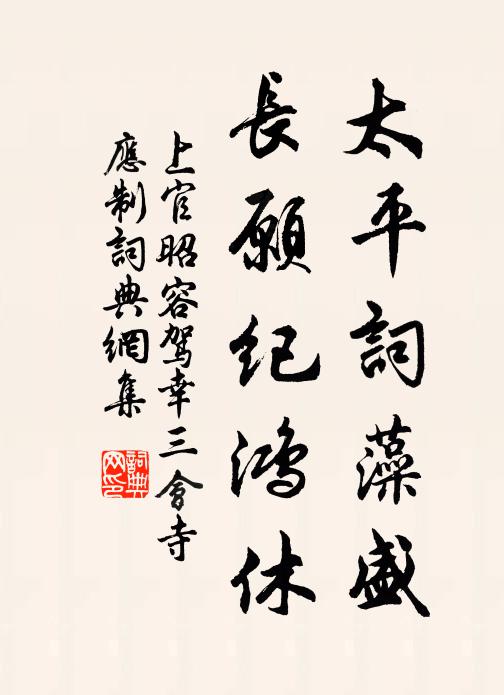 太平詞藻盛
長願紀鴻休
上官昭容駕幸三會寺
應制詞典網集
詞典网印